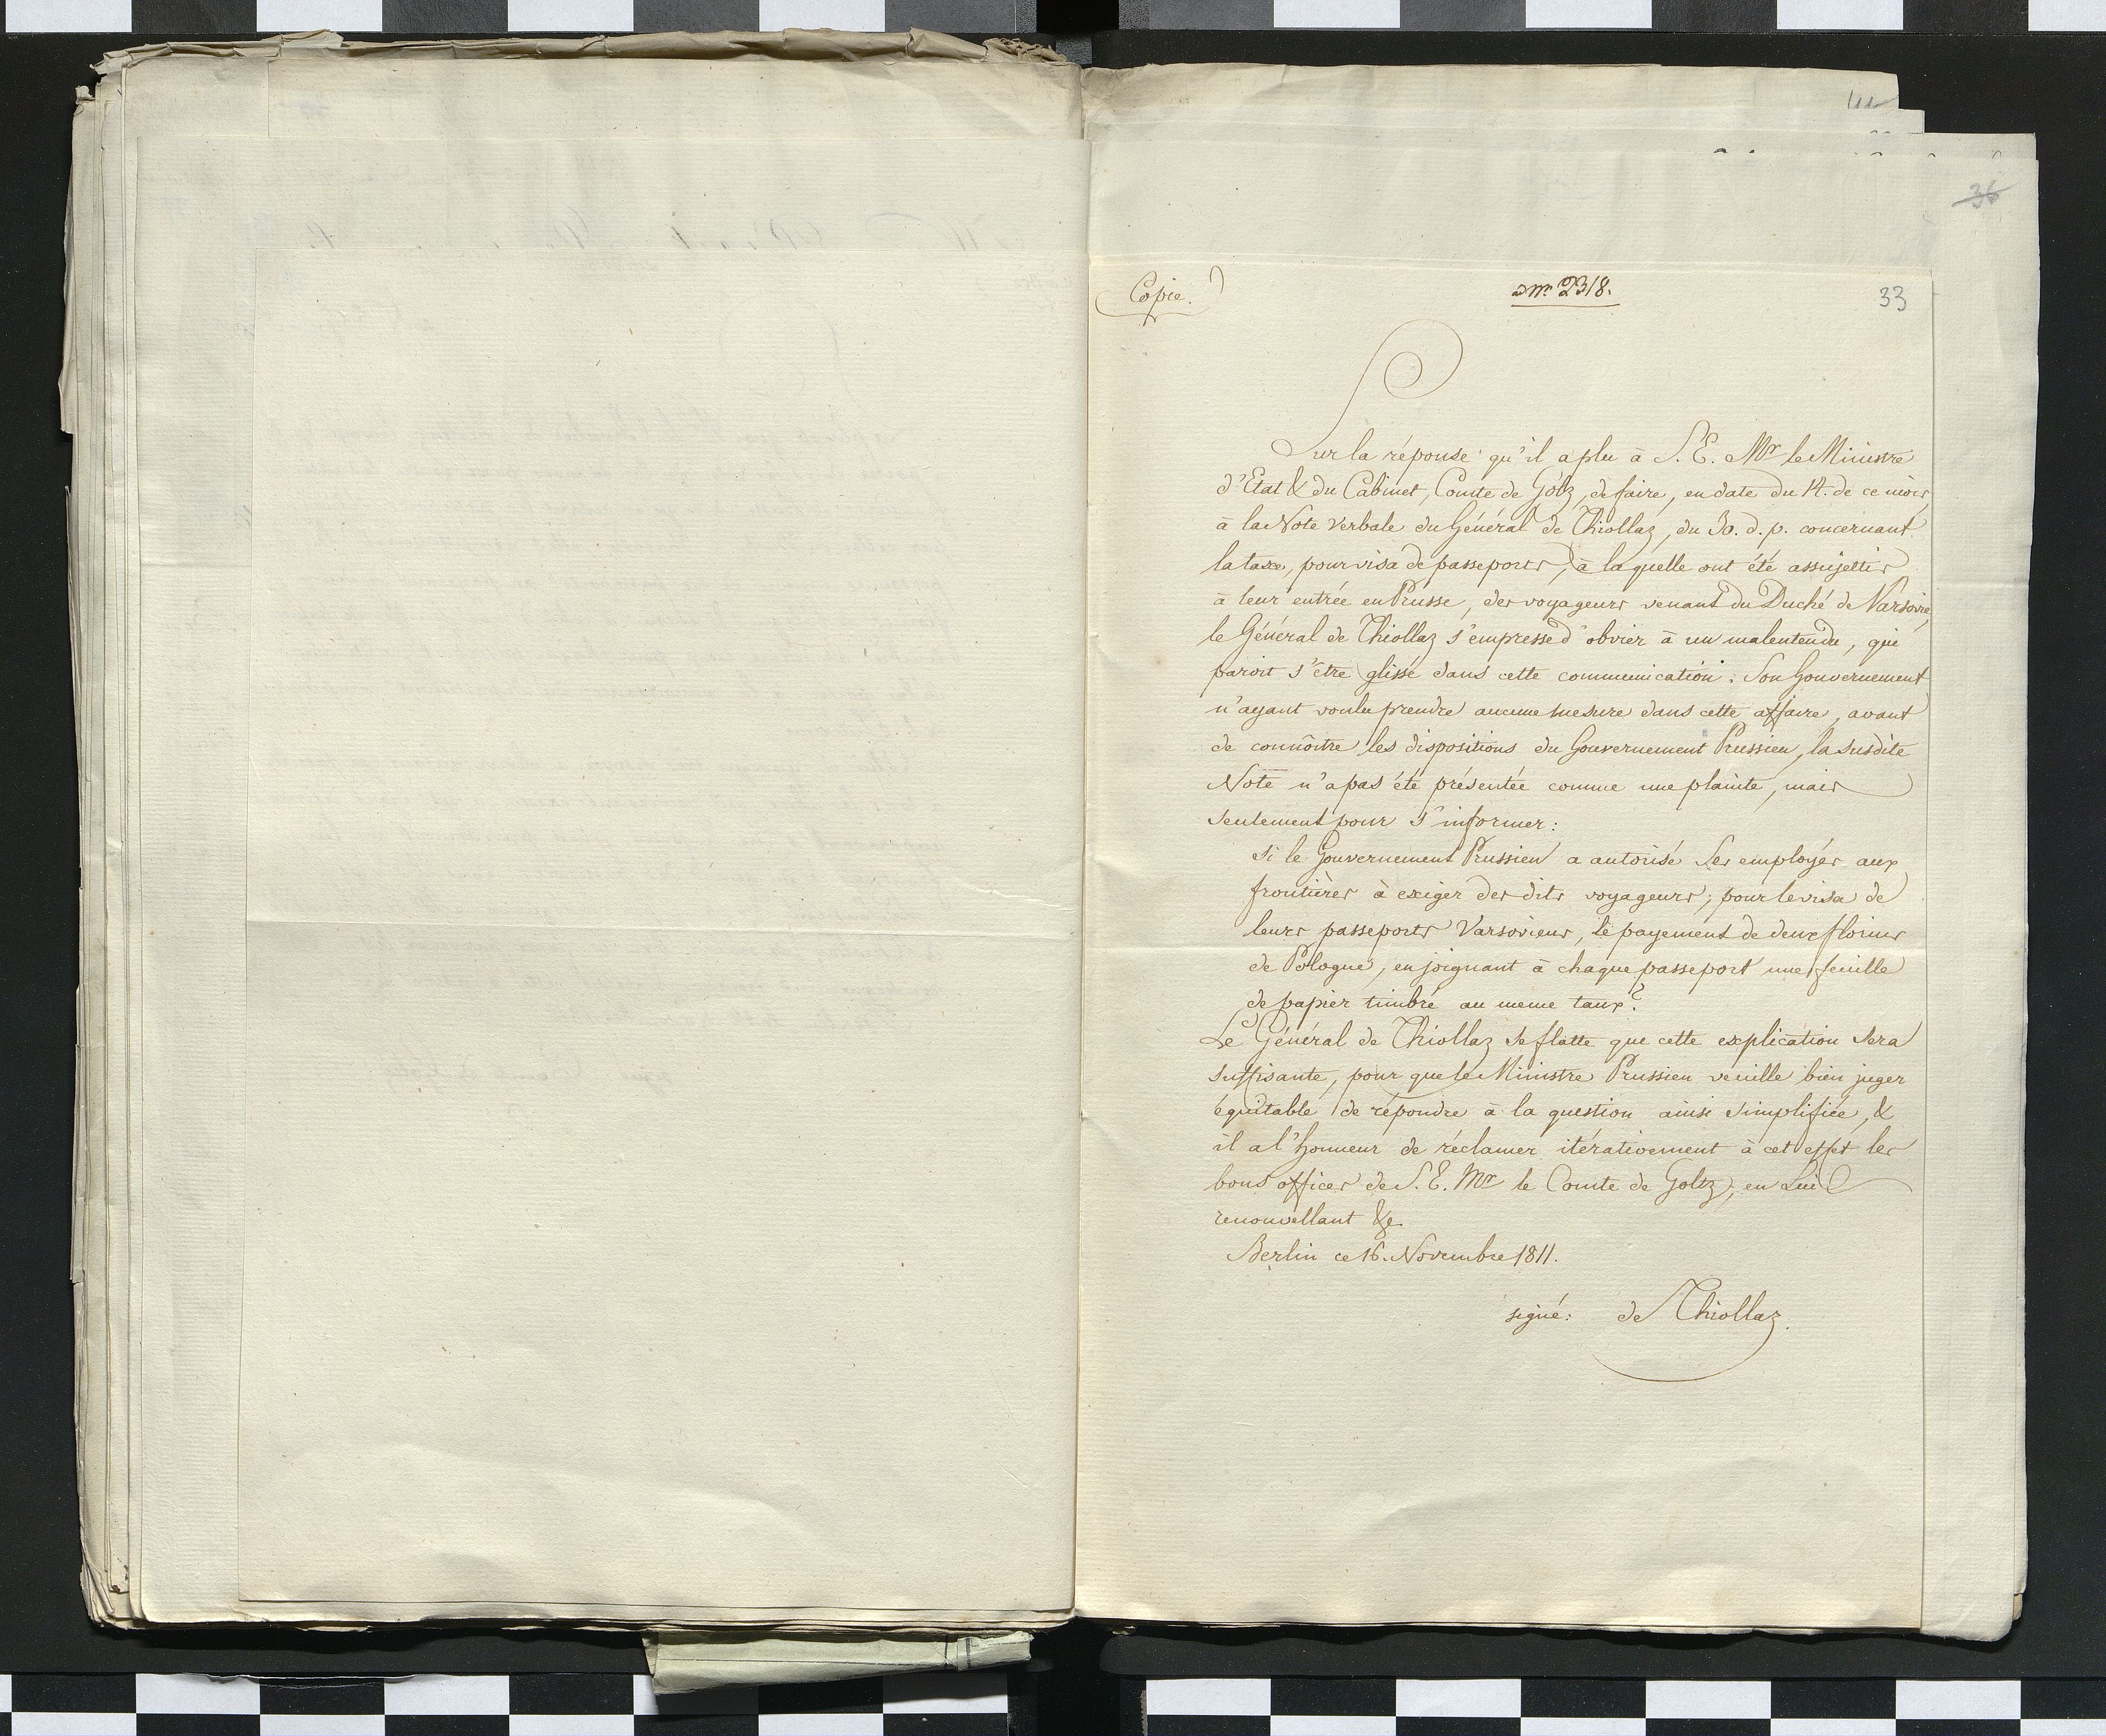 36
Copie.
ad Nr. 2318.
33
Sur la réponse qu'il a plu à S. E. Mr le Ministre
d'Etat & du Cabinet, Comte de Goltz, de faire, en date du 14. de ce mois,
à la Note verbale du Général de Thiollaz, du 30. d. p. concernant
la taxe, pour visa de passeports, à laquelle ont été assujettis
à leur entrée en Prusse, des voyageurs venant du Duché de Varsovie,
le Général de Thiollaz s'empresse d'obvier à un malentendu, qui
paroit s'être glissé dans cette communication. Son Gouvernement
n'ayant voulu prendre aucune mesure dans cette affaire, avant
de connoitre les dispositions du Gouvernement Prussien, la susdite
Note n'a pas été présentée comme une plainte, mais
seulement pour s'informer:
si le Gouvernement Prussien a autorisé Ses employés aux
frontières à exiger des dits voyageurs, pour le visa de
leurs passeports Varsoviens, le payement de deux florins
de Pologne, en joignant à chaque passeport une feuille
de papier timbré au meme taux?
Le Général de Thiollaz se flatte que cette explication sera
suffisante, pour que le Ministre Prussien veuille bien juger
équitable de répondre à la question ainsi simplifiée, &
il a l'honneur de réclamer itérativement à cet effet les
bons offices de S. E. Mr le Comte de Goltz, en Lui
renouvellant &c
Berlin ce 16. Novembre 1811.
signé: de Thiollaz.